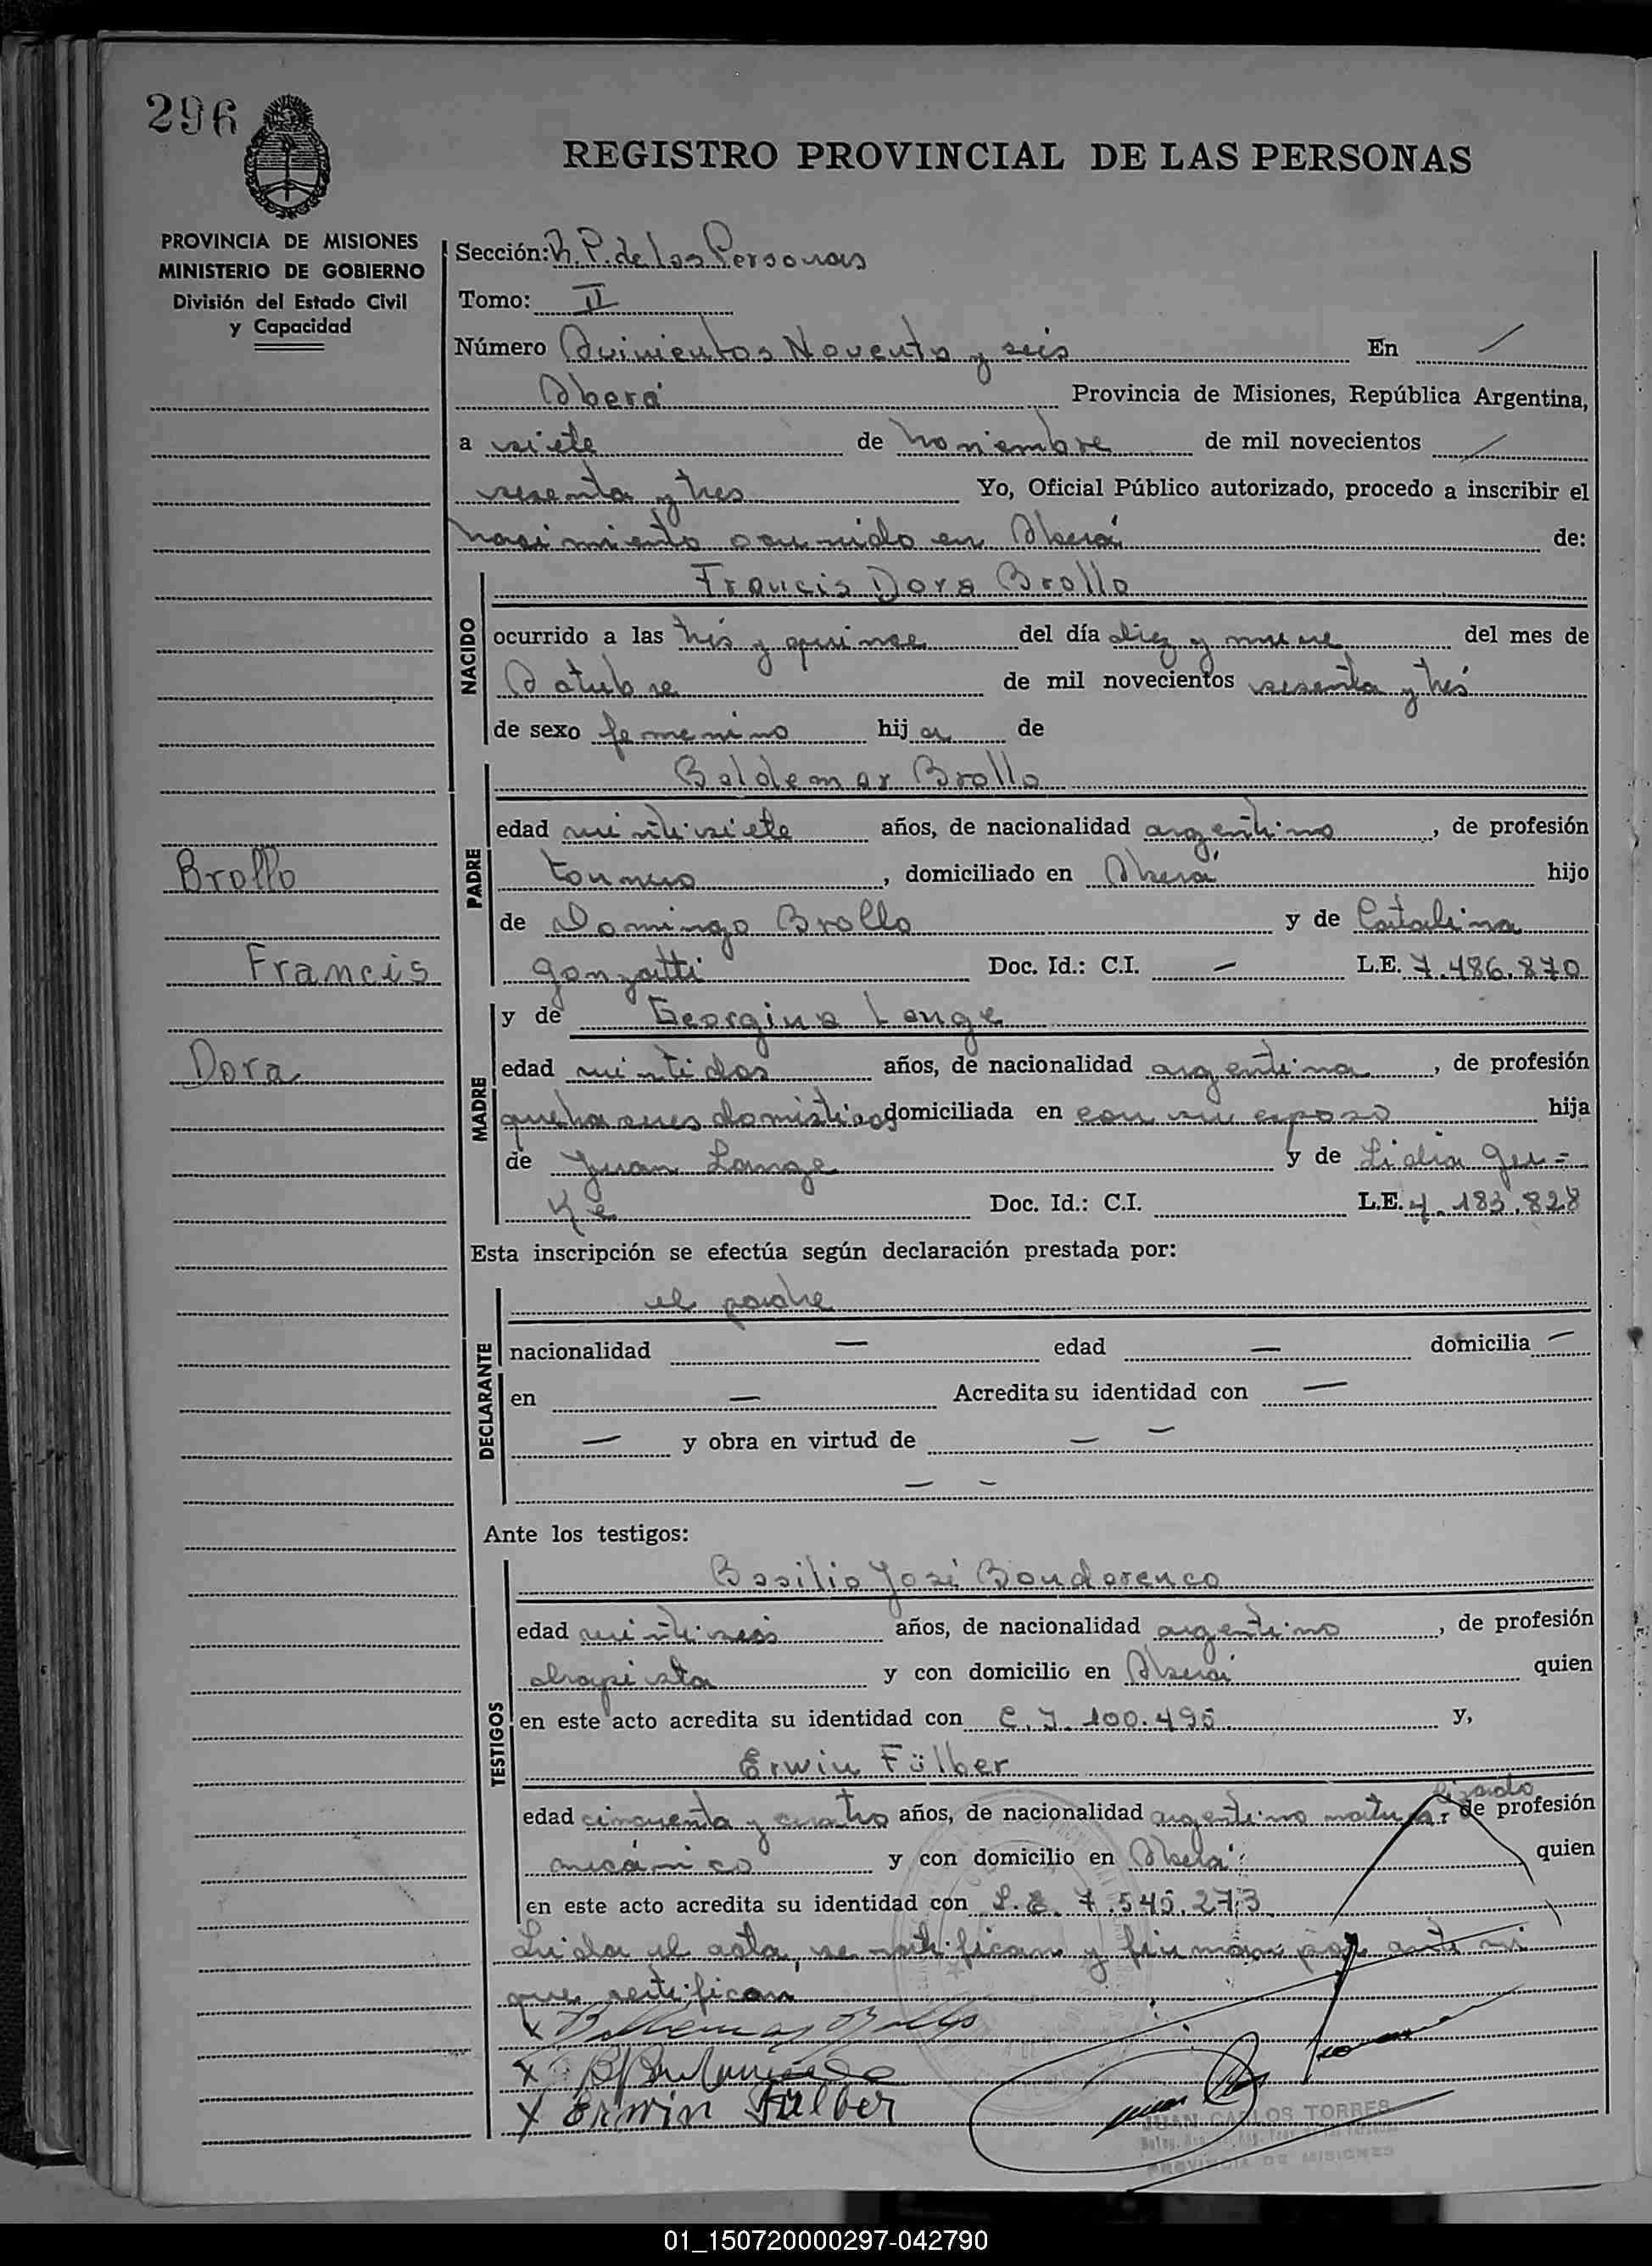 296
REGISTRO PROVINCIAL DE LAS PERSONAS
PROVINCIA DE MISIONES
MINISTERIO DE GOBIERNO
División del Estado Civil
y Capacidad
Sección: R. P. de las Personas
Tomo: II
Número Quinientos Noventa y seis En /
Oberá Provincia de Misiones, República Argentina,
a siete de noviembre de mil novecientos /
sesenta y tres Yo, Oficial Público autorizado, procedo a inscribir el
nacimiento ocurrido en Oberá de:
NACIDO
Francis Dora Brollo
ocurrido a las tres y quince del día diez y nueve del mes de
Octubre de mil novecientos sesenta y tres
de sexo femenino hija de
PADRE
Baldemar Brollo
edad veintisiete años, de nacionalidad argentino, de profesión
tornero, domiciliado en Oberá hijo
de Domingo Brollo y de Catalina
Gonzatti Doc. Id.: C.I. — L.E. 7.486.870
Brollo
Francis
Dora
MADRE
y de Georgina Lange
edad veintidos años, de nacionalidad argentina, de profesión
quehaceres domésticos domiciliada en con su esposo hija
de Juan Lange y de Lidia Ger=
ke Doc. Id.: C.I. L.E. 4.183.828
Esta inscripción se efectúa según declaración prestada por:
DECLARANTE
el padre
nacionalidad — edad — domicilia —
en — Acredita su identidad con —
— y obra en virtud de — —
— —
Ante los testigos:
TESTIGOS
Basilio José Bondarenco
edad veintiseis años, de nacionalidad argentino, de profesión
chapista y con domicilio en Oberá quien
en este acto acredita su identidad con C.I. 100.495 y,
Erwin Fülber
edad cincuenta y cuatro años, de nacionalidad argentino naturalizado, de profesión
mecánico y con domicilio en Oberá quien
en este acto acredita su identidad con L.E. 7.545.273
Leida el acta, se ratifican y firman por ante mi
que certifican
x Baldemar Brollo
x
x Erwin Fülber
JUAN CARLOS TORRES
PROVINCIA DE MISIONES
01_150720000297-042790